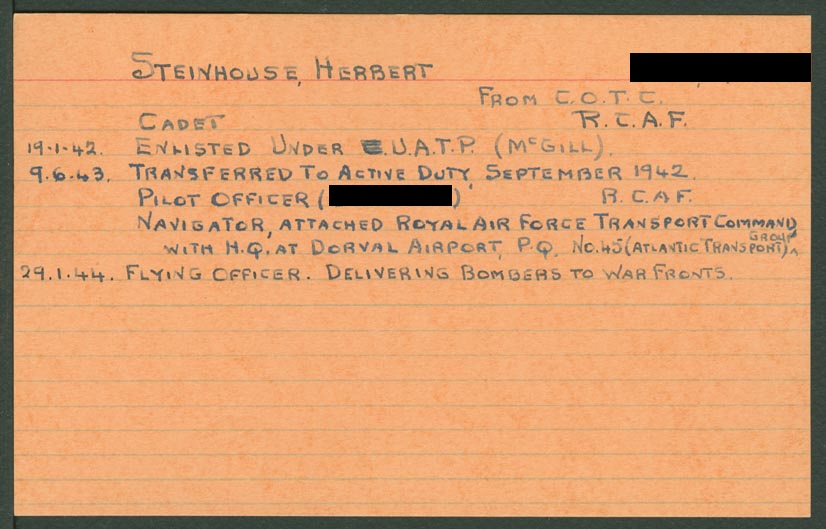 STEINHOUSE, HERBERT
FROM C.O.T.C.
CADET R.C.A.F.
19.1.42. ENLISTED UNDER U.A.T.P. (McGILL).
9.6.43. TRANSFERRED TO ACTIVE DUTY, SEPTEMBER 1942.
PILOT OFFICER ( ) R.C.A.F.
NAVIGATOR, ATTACHED ROYAL AIR FORCE TRANSPORT COMMAND,
WITH H.Q. AT DORVAL AIRPORT, P.Q. NO.45 (ATLANTIC TRANSPORT) GROUP
29.1.44. FLYING OFFICER. DELIVERING BOMBERS TO WAR FRONTS.